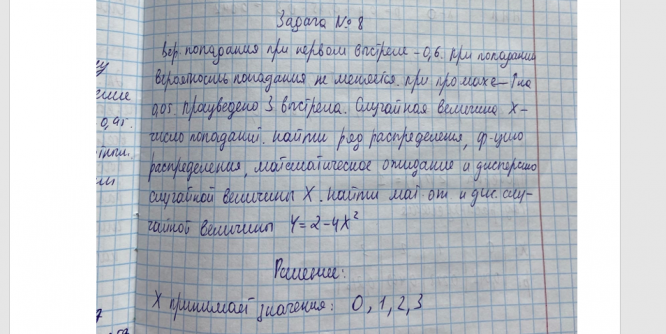 Задача № 8
Вер. попадания при первом выстреле - 0,6. При попадании
вероятность попадания не меняется. При промахе - ↑ на
0,05. Произведено 3 выстрела. Случайная величина X -
число попаданий. Найти ряд распределения, ф-цию
распределения, математическое ожидание и дисперсию
случайной величины X. Найти мат. ож и дис. слу-
чайной величины Y = 2 - 4X²
Решение:
X принимает значения: 0, 1, 2, 3